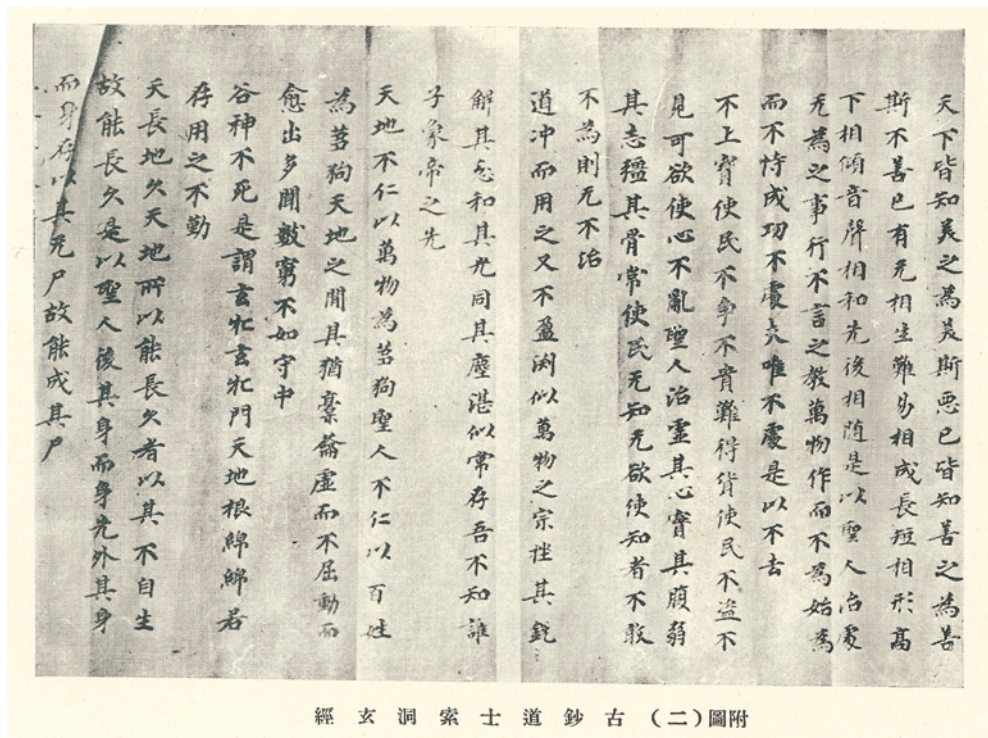 天下皆知美之為美斯惡已皆知善之為善
斯不善已有无相生難易相成長短相形高
下相傾音聲相和先後相随是以聖人治處
无為之事行不言之教萬物作而不為始為
而不恃成功不處夫唯不處是以不去
不上寶使民不争不貴難得貨使民不盗不
見可欲使心不亂聖人治靈其心實其腹弱
其志殭其骨常使民无知无欲使知者不敢
不為則无不治
道冲而用之又不盈渊似萬物之宗挫其銳
解其忿和其光同其塵湛似常存吾不知誰
子象帝之先
天地不仁以萬物為芻狗聖人不仁以百姓
為芻狗天地之間其猶橐籥虛而不屈動而
愈出多聞數窮不如守中
谷神不死是謂玄牝玄牝門天地根綿綿若
存用之不勤
天長地久天地所以能長久者以其不自生
故能長久是以聖人後其身而身先外其身
而身存以其无尸故能成其尸
附圖(二)古鈔道士索洞玄經